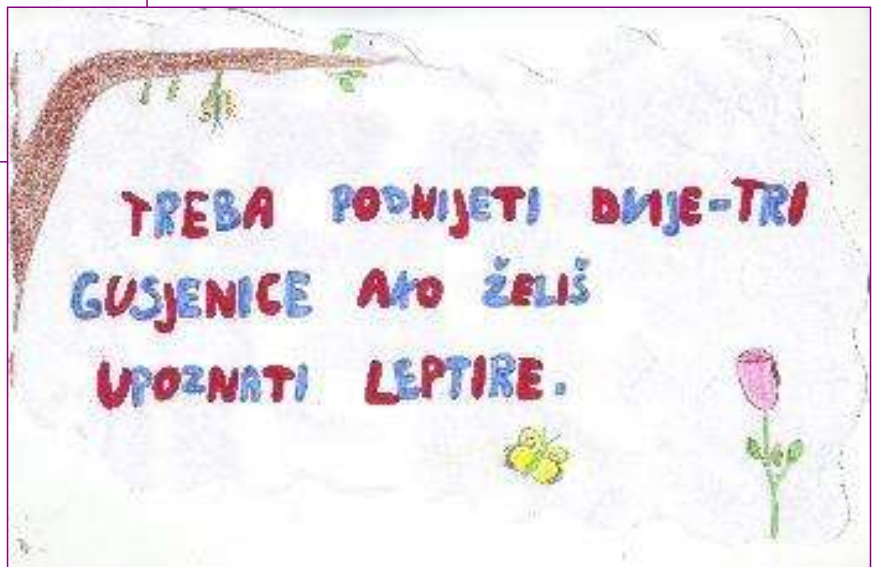 TREBA PODNIJETI DVIJE-TRI
GUSJENICE AKO ŽELIŠ
UPOZNATI LEPTIRE.